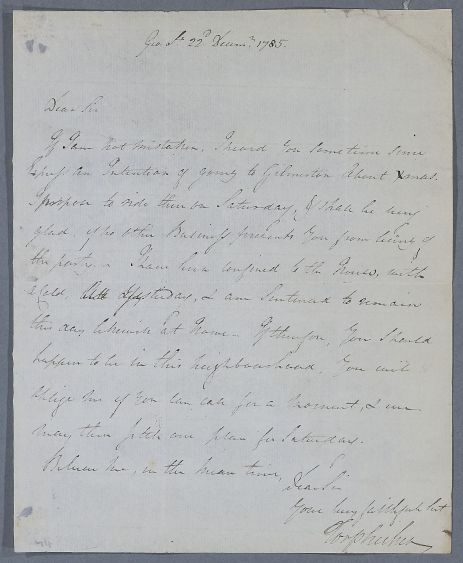 Geo St. 22d Decemr. 1785.
Dear Sir
If I am not mistaken, I heard You sometime since
express an Intention of going to Gilmerton about Xmas.
I propose to ride there on Saturday, & shall be very
glad, if no other Business prevents You from being of
the party. I have been confined to the House, with
a Cold, Yesterday, & am Sentenced to remain
this day likewise at Home. If therefore, You should
happen to be in this neighbourhood, You will
oblige me if You can call for a moment, & we
may then fetch our plan for Saturday.
Believe me, in the mean time,
Dear Sir
Your very faithful